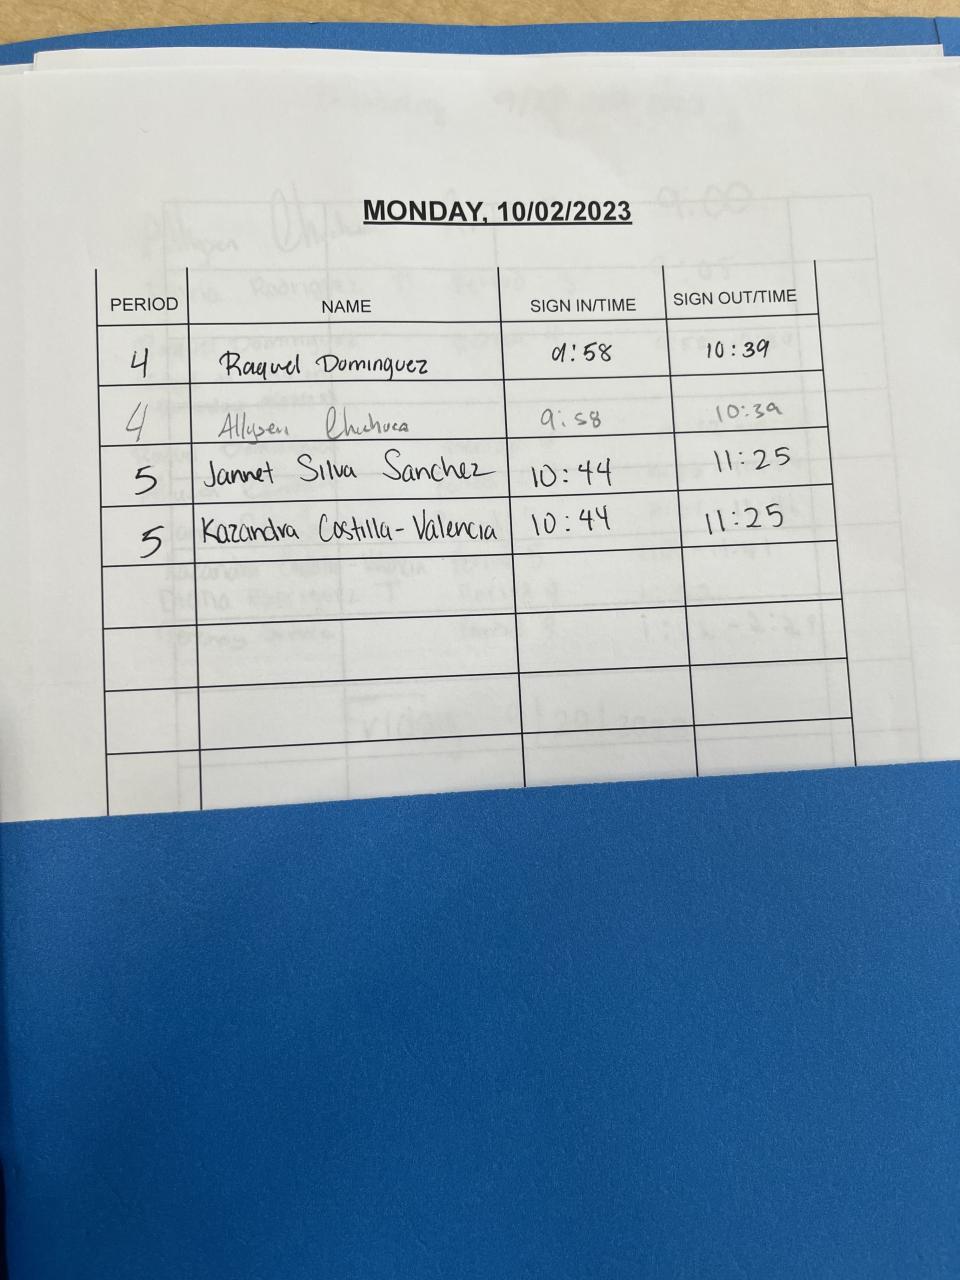 MONDAY, 10/02/2023
PERIOD NAME SIGN IN/TIME SIGN OUT/TIME
4 Raquel Dominguez 9:58 10:39
4 Allysen Chuhuca 9:58 10:39
5 Jannet Silva Sanchez 10:44 11:25
5 Kazandra Costilla-Valencia 10:44 11:25